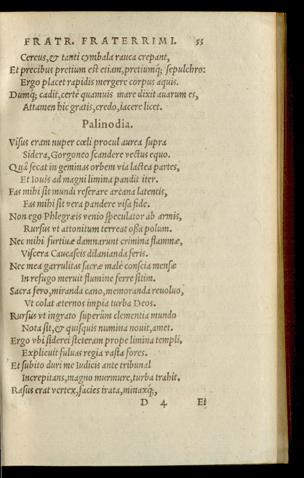 FRATR. FRATERRIMI. 55
Cereus,& tanti cymbala rauca crepant,
Et precibus pretium est etiam, pretiumq; sepulchro:
Ergo placet rapidis mergere corpus aquis.
Dumq; cadit, certè quamuis mare dixit auarum es,
Attamen hic gratis, credo, iacere licet.
Palinodia.
Visus eram nuper cœli procul aurea supra
Sidera, Gorgoneo scandere vectus equo.
Quà secat in geminas orbem via lactea partes,
Et Iouis ad magni limina pandit iter.
Fas mihi sit mundi reserare arcana latentis,
Fas mihi sit vera pandere visa fide.
Non ego Phlegræis venio speculator ab armis,
Rursus vt attonitum terreat ossa polum.
Nec mihi furtiuæ damnarunt crimina flammæ,
Viscera Caucaseis dilanianda feris.
Nec mea garrulitas sacræ malè conscia mensæ
In refugo meruit flumine ferre sitim.
Sacra fero, miranda cano, memoranda reuoluo,
Vt colat æternos impia turba Deos.
Rursus vt ingrato superûm clementia mundo
Nota sit, & quisquis numina nouit, amet.
Ergo vbi siderei steteram prope limina templi,
Explicuit fuluas regia vasta fores.
Et subito duri me Iudicis ante tribunal
Increpitans, magno murmure, turba trahit.
Rasus erat vertex, facies irata, minaxq;,
D 4 Et